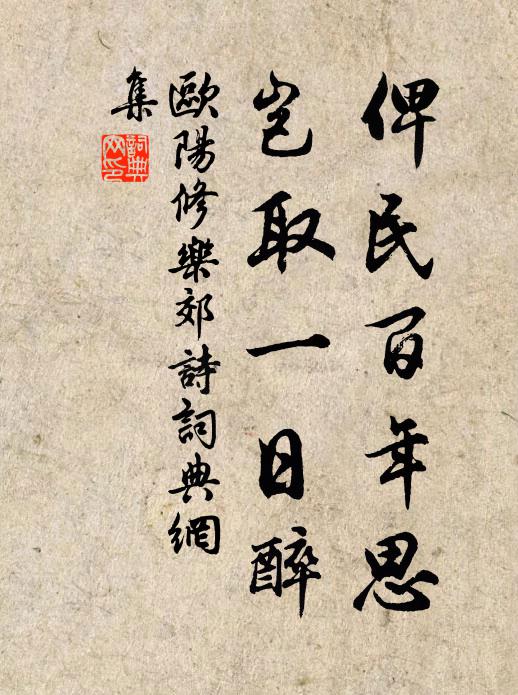 俾民百年思
豈取一日醉
歐陽修樂郊詩詞典網
集
詞典
网印